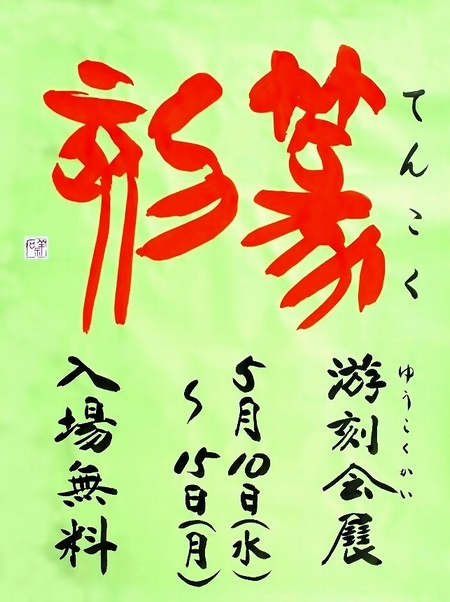 篆刻
てんこく
游刻会展
ゆうこくかい
5月10日(水)
〜15日(月)
入場無料